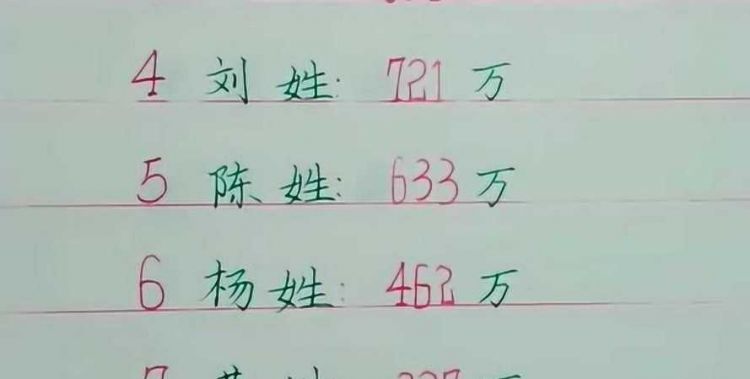 4 刘姓: 721万
5 陈姓: 633万
6 杨姓: 462万